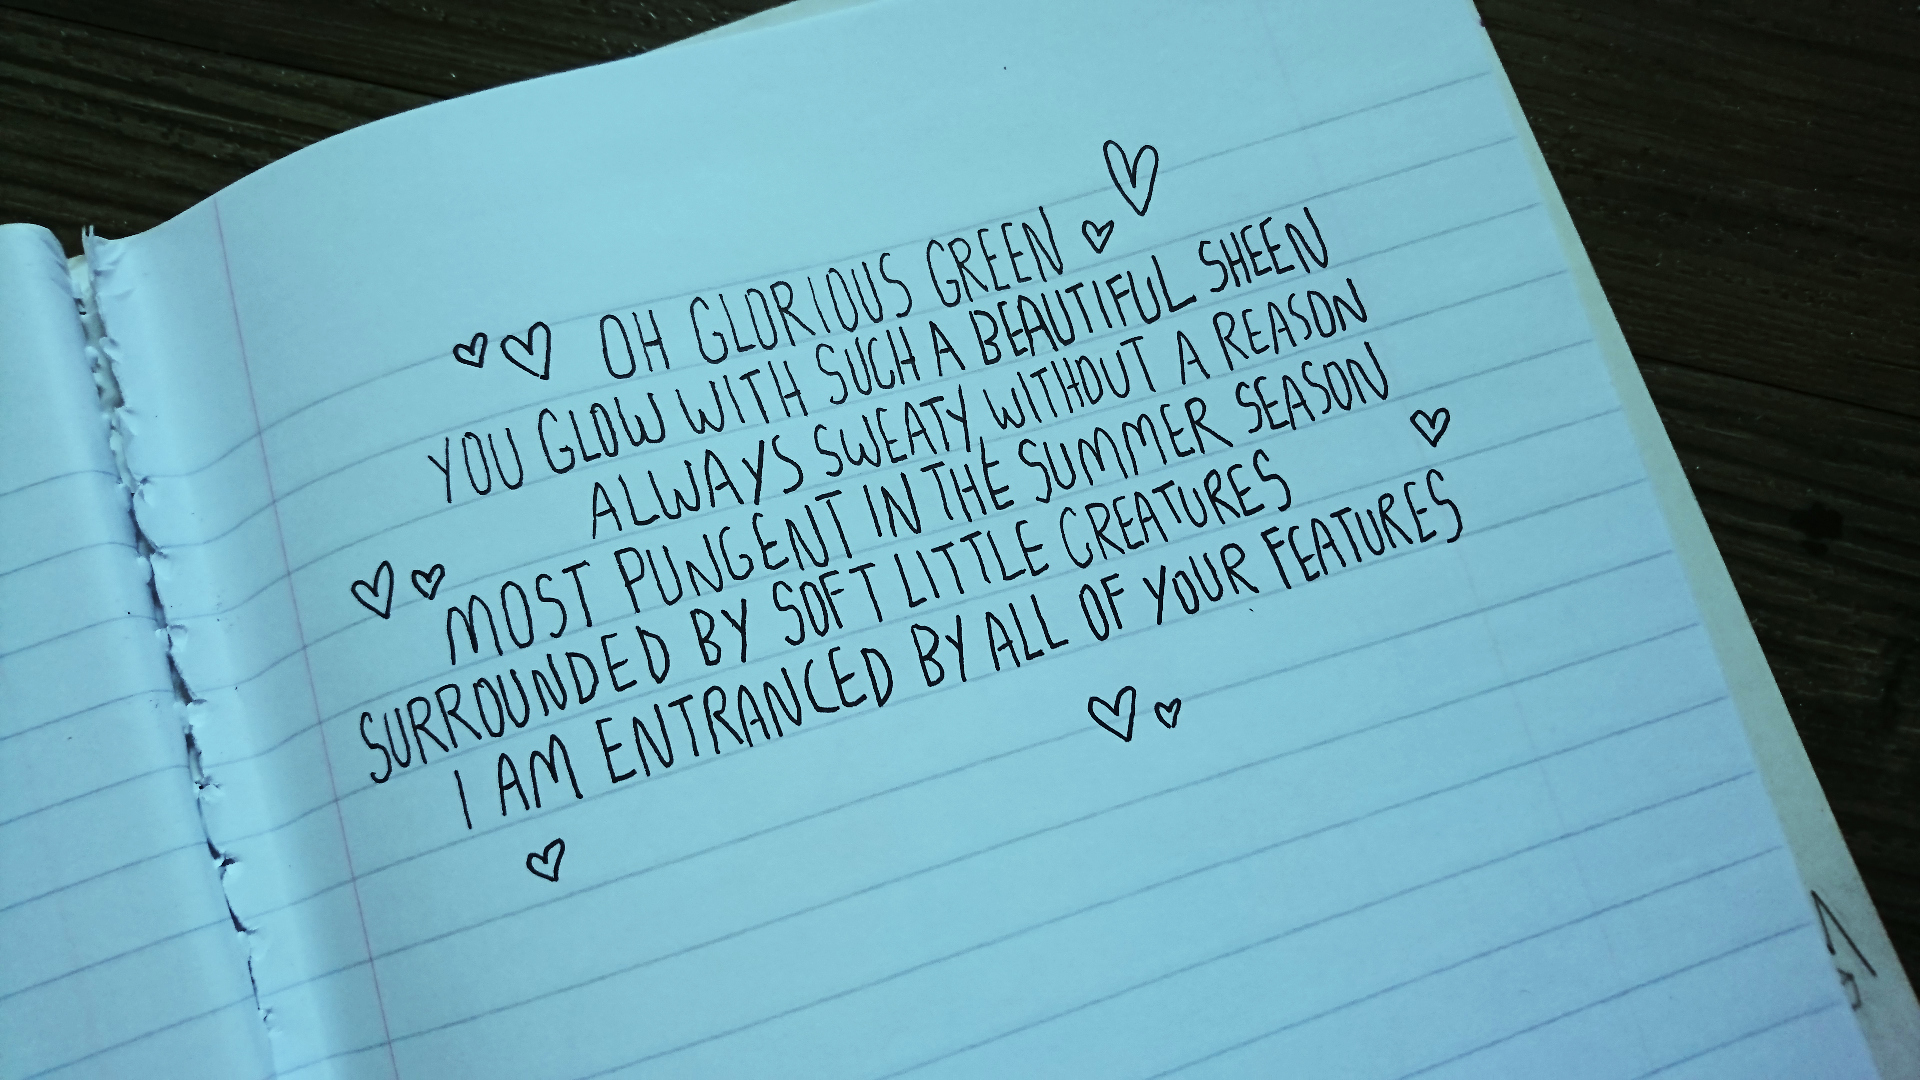 OH GLORIOUS GREEN
YOU GLOW WITH SUCH A BEAUTIFUL SHEEN
ALWAYS SWEATY WITHOUT A REASON
MOST PUNGENT IN THE SUMMER SEASON
SURROUNDED BY SOFT LITTLE CREATURES
I AM ENTRANCED BY ALL OF YOUR FEATURES